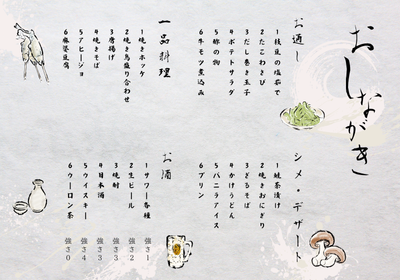 おしながき
お通し
1枝豆の塩茹で
2たこわさび
3だし巻き玉子
4ポテトサラダ
5酢の物
6牛モツ煮込み
一品料理
1焼きホッケ
2焼き鳥盛り合わせ
3唐揚げ
4焼きそば
5アヒージョ
6麻婆豆腐
シメ・デザート
1鮭茶漬け
2焼きおにぎり
3ざるそば
4かけうどん
5バニラアイス
6プリン
お酒
1サワー各種 強さ1
2生ビール 強さ2
3焼酎 強さ3
4日本酒 強さ3
5ウイスキー 強さ4
6ウーロン茶 強さ0